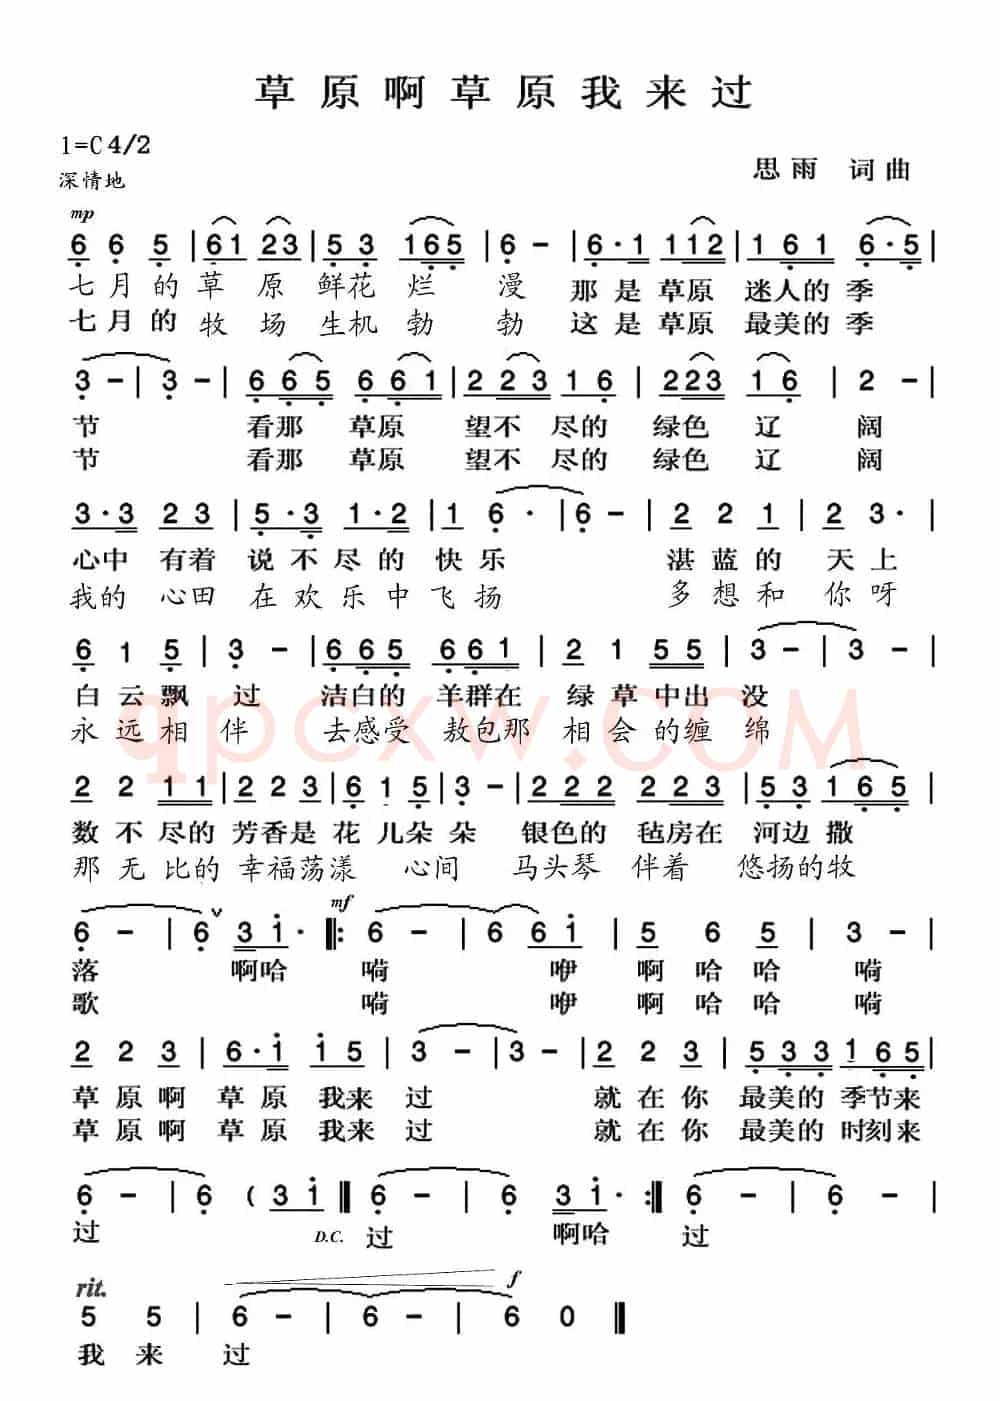 草原啊草原我来过
1=C 4/2
思雨 词曲
深情地
mp
6 6 5 | 61 23 | 5 3 165 | 6 - | 6·1 112 | 1 61 6·5 |
七月的草原鲜花烂漫 那是草原迷人的季
七月的牧场生机勃勃 这是草原最美的季
3 - | 3 - | 665 661 | 223 16 | 223 16 | 2 - |
节 看那草原望不尽的绿色辽阔
节 看那草原望不尽的绿色辽阔
3·3 23 | 5·3 1·2 | 1 6· | 6 - | 2 2 1 | 2 3· |
心中有着说不尽的快乐 湛蓝的天上
我的心田在欢乐中飞扬 多想和你呀
6 1 5 | 3 - | 665 661 | 2 1 55 | 3 - | 3 - |
白云飘过 洁白的羊群在绿草中出没
永远相伴 去感受敖包那相会的缠绵
qpcxw.COM
2 2 11 | 223 | 6 1 5 | 3 - | 222 223 | 53 165 |
数不尽的芳香是花儿朵朵 银色的毡房在河边撒
那无比的幸福荡漾心间 马头琴伴着悠扬的牧
mf
6 - | 6 ∨ 3i· ‖: 6 - | 6 6i | 5 6 5 | 3 - |
落 啊哈 嗬 咿 啊哈哈嗬
歌 嗬 咿 啊哈哈嗬
2 2 3 | 6·i i5 | 3 - | 3 - | 2 2 3 | 533 165 |
草原啊草原我来过 就在你最美的季节来
草原啊草原我来过 就在你最美的时刻来
6 - | 6 ( 3i ‖ 6 - | 6 3i· :‖ 6 - | 6 - |
过 D.C. 过 啊哈 过
rit. f
5 5 | 6 - | 6 - | 6 0 ‖
我来过